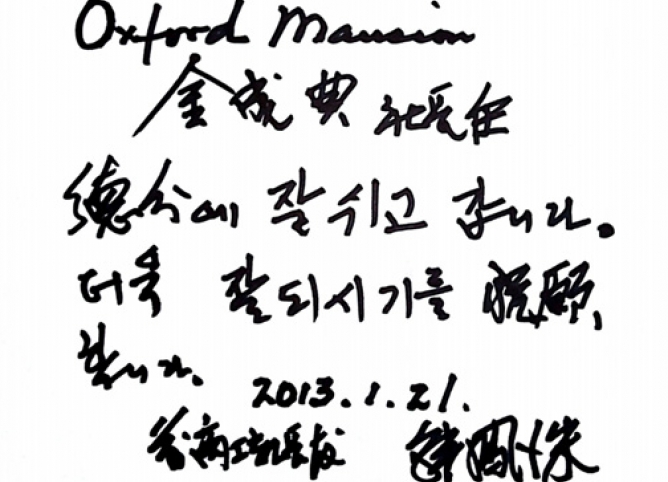 Oxford Mansion
金成典 社長任
德分에 잘 쉬고 갑니다.
더욱 잘 되시기를 祝願
합니다.
2013.1.21.
商工部長官 韓鳳洙